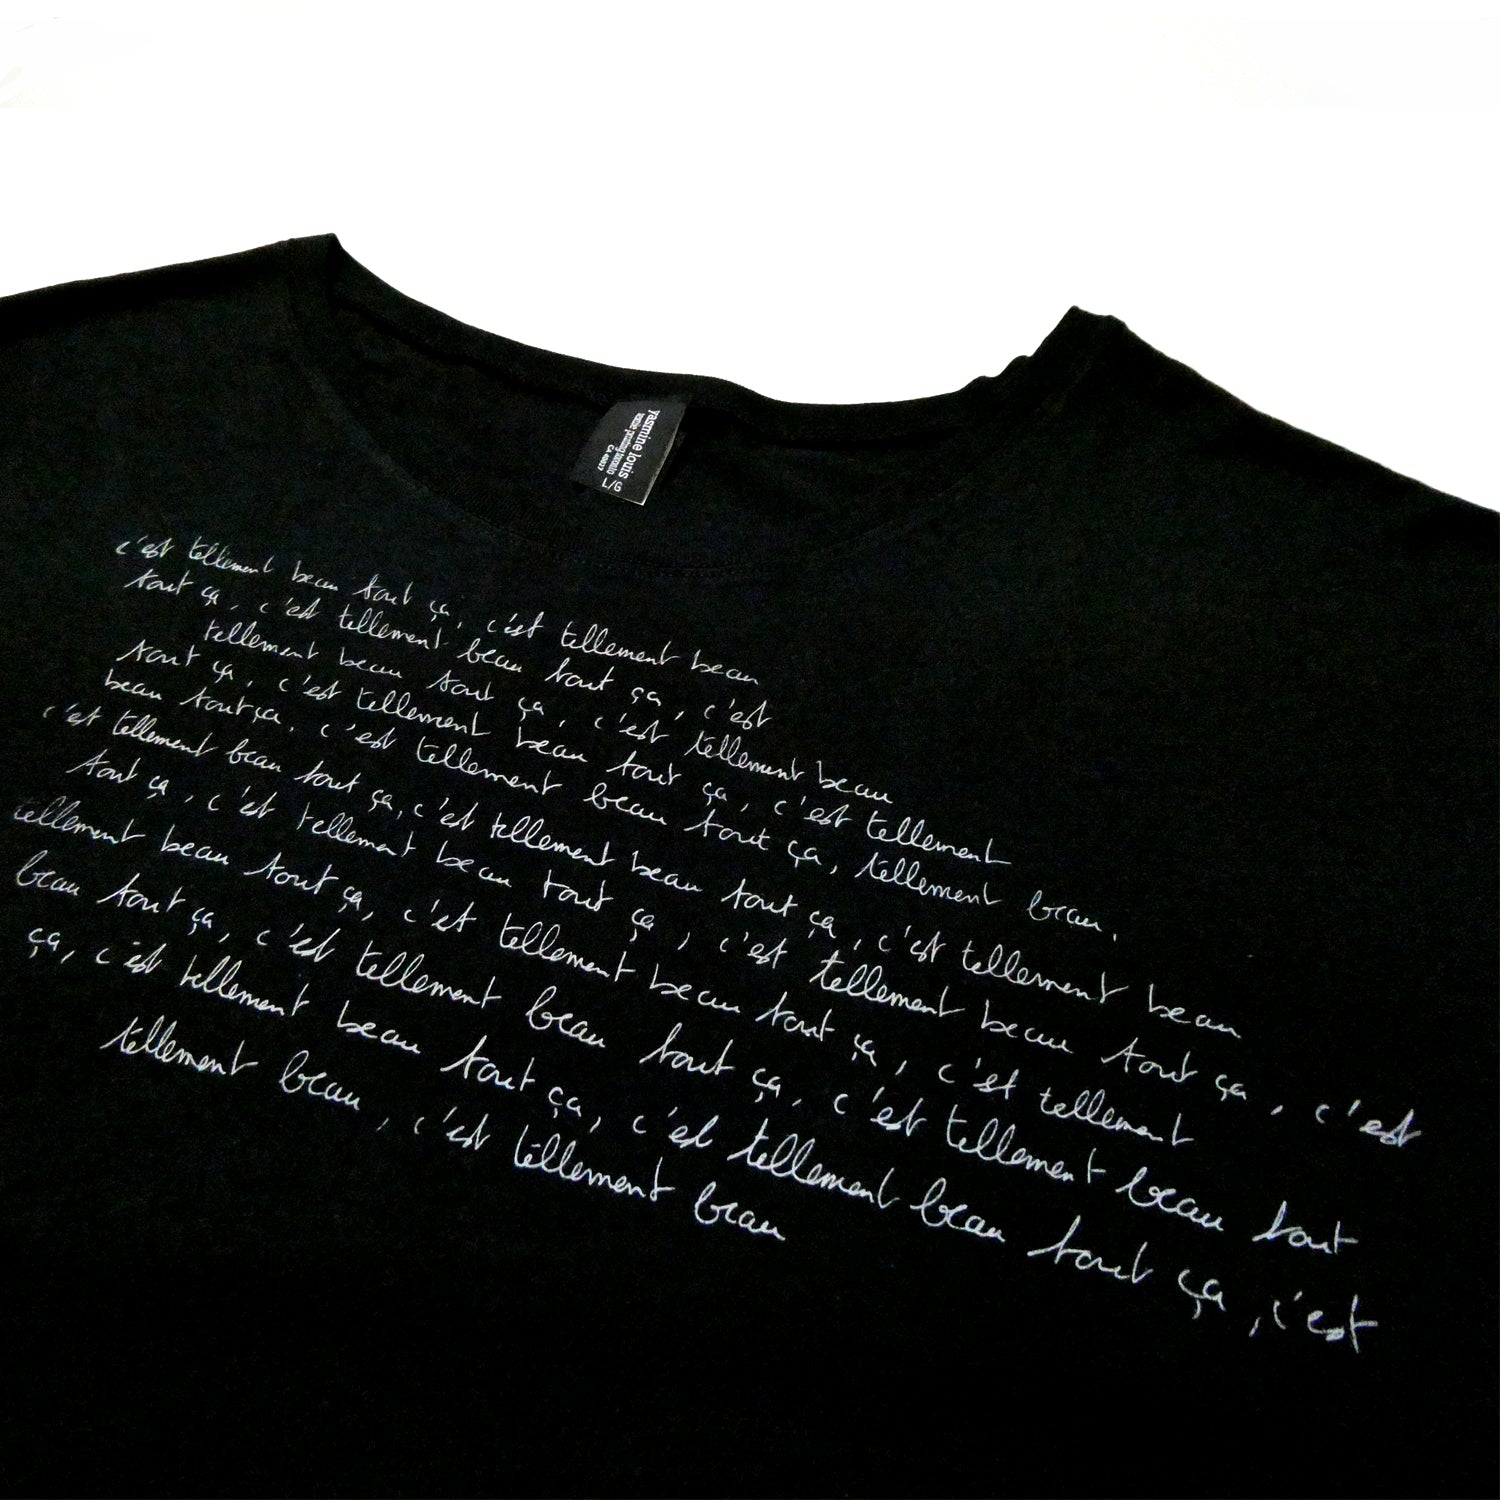 yasmine louis
textile printing toronto
L/G
c'est tellement beau tout ça, c'est tellement beau
tout ça, c'est tellement beau tout ça, c'est
tellement beau tout ça, c'est tellement beau
tout ça, c'est tellement beau tout ça, c'est tellement
beau tout ça, c'est tellement beau tout ça, tellement beau,
c'est tellement beau tout ça, c'est tellement beau tout ça, c'est tellement beau
tout ça, c'est tellement beau tout ça, c'est tellement beau tout ça, c'est
tellement beau tout ça, c'est tellement beau tout ça, c'est tellement
beau tout ça, c'est tellement beau tout ça, c'est tellement beau tout
ça, c'est tellement beau tout ça, c'est tellement beau tout ça, c'est
tellement beau, c'est tellement beau